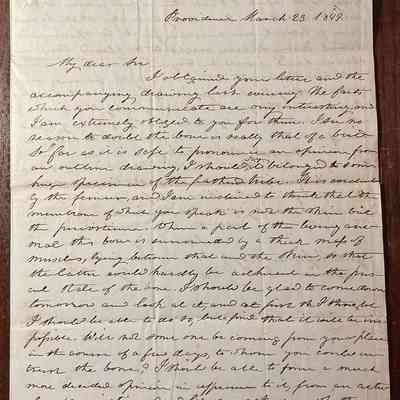 Providence March 23. 1849.
My dear Sir
I obtained your letter and the
accompanying drawing last evening. The facts
which you communicate are very interesting, and
I am extremely obliged to you for them. I see no
reason to doubt the bone is really that of a bird
So far as it is safe to pronounce an opinion from
an outline drawing, I should it belonged to some
huge specimen of the feathered tribe. It is evident
ly the femur, and I am inclined to think that the
membrane of which you speak is not the skin but
the periosteum. When a part of the living ani
mal this bone is surrounded by a thick mass of
muscles, lying between that and the skin, so that
the latter could hardly be adherent in the pres
ent state of the one. I should be glad to come down
tomorrow and look at it, and at first thought
I should be able to do so, but find that it will be im
possible. Will not some one be coming from your place
in the course of a few days, to whom you could en
trust the bone? I should be able to form a much
more decided opinion in reference to it, from an actual